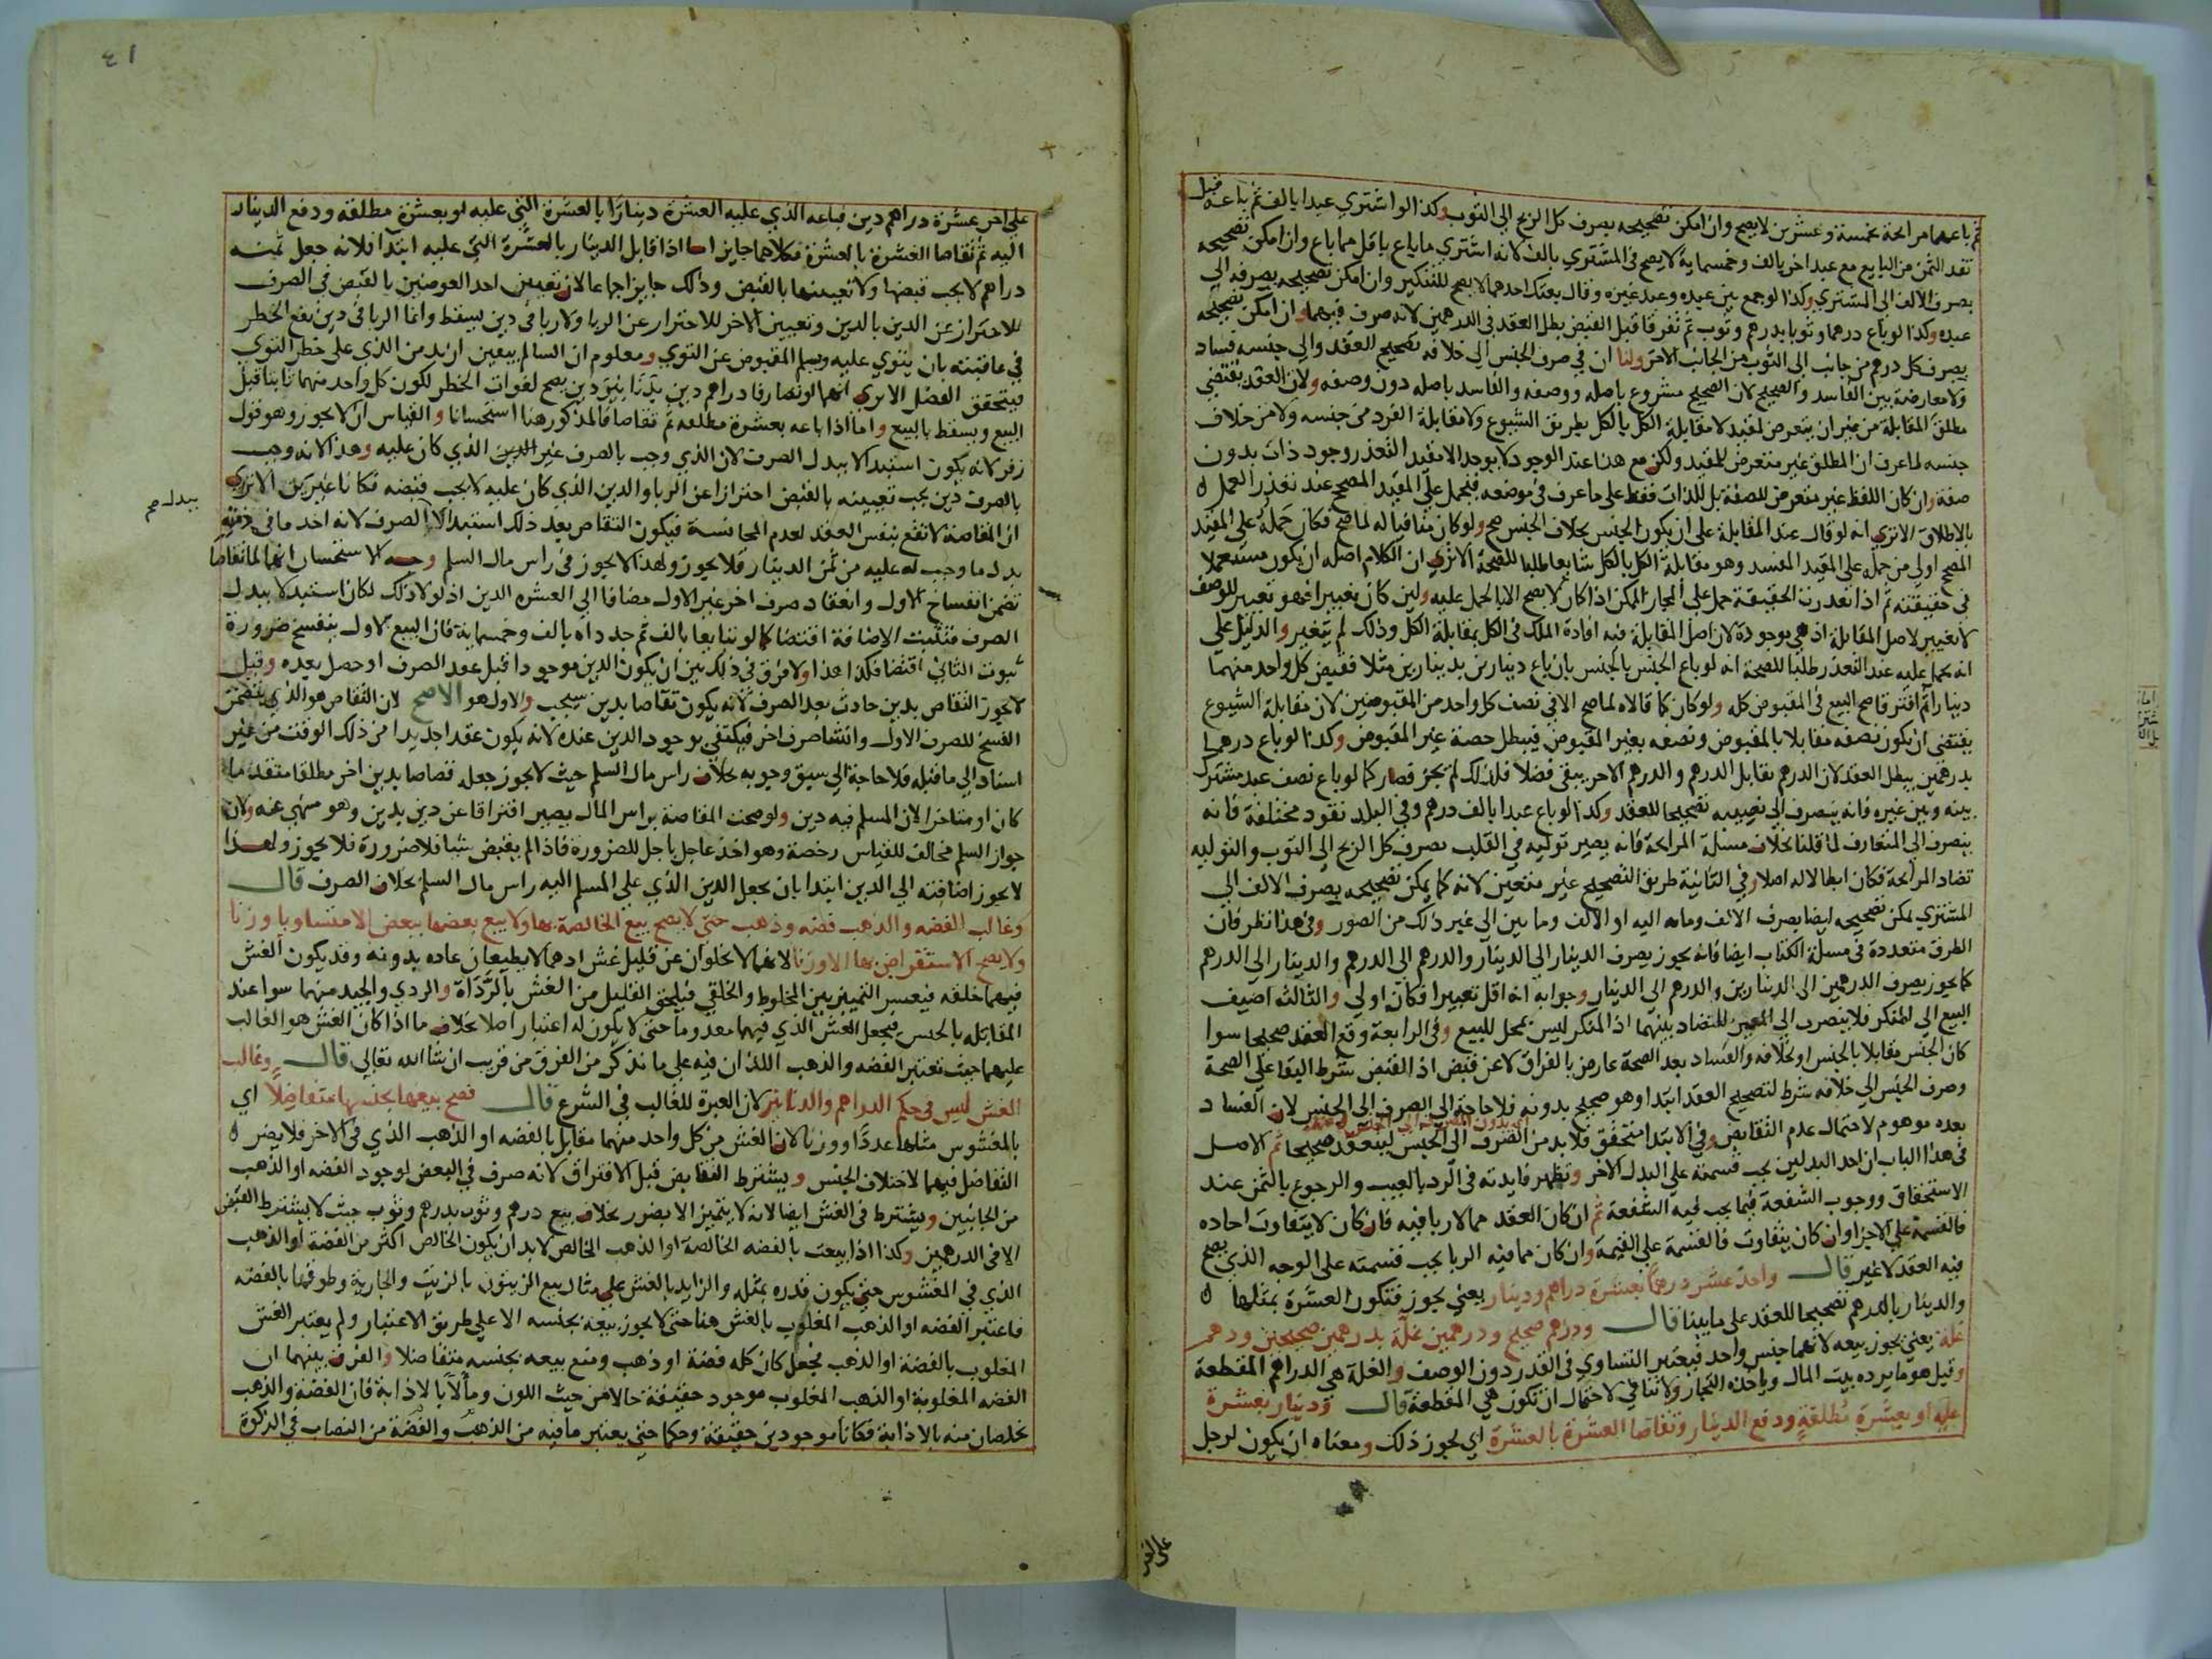 ثم باعهما مرابحة بخمسة وعشرين لا يصح وان امكن تصحيحه بصرف كل الربح الى الثوب وكذا لو اشترى عبدا بالف ثم باعه قبل
نقد الثمن من البايع مع عبد اخر بالف وخمسماية لا يصح فى المشترى بالف لانه اشترى ما باع باقل مما باع وان امكن تصحيحه
بصرف الالف الى المشترى وكذا لو جمع بين عبده وعبد غيره وقال بعتك احدهما لا يصح للتنكير وان امكن تصحيحه بصرفه الى
عبده وكذا لو باع درهما وثوبا بدرهم وثوب ثم تفرقا قبل القبض بطل العقد فى الدرهمين لانه صرف فيهما وان امكن تصحيحه
بصرف كل درهم من جانب الى الثوب من الجانب الاخر ولنا ان فى صرف الجنس الى خلافه تصحيح العقد والى جنسه فساد
ولا معارضة بين الفاسد والصحيح لان الصحيح مشروع باصله ووصفه والفاسد باصله دون وصفه ولان العقد يقتضى
مطلق المقابلة من غير ان يتعرض لمقيد لا مقابلة الكل بالكل بطريق الشيوع ولا مقابلة الفرد من جنسه ولا من خلاف
جنسه لما عرف ان المطلق غير متعرض للمقيد ولكن مع هذا عند الوجود لا يوجد الا مقيد التعذر وجود ذات بدون
صفة وان كان اللفظ غير متعرض للصفة بل للذات فقط على ما عرف فى موضعه فيحمل على المقيد المصحح عند تعذر العمل
بالاطلاق الا ترى انه لو قال عند المقابلة على ان يكون الجنس بخلاف الجنس صح ولو كان منافيا له لما صح فكان حمله على المقيد
المصحح اولى من حمله على المقيد المفسد وهو مقابلة الكل بالكل شايعا طلبا للصحة الا ترى ان الكلام اصله ان يكون مستعملا
فى حقيقته ثم اذا تعذرت الحقيقة حمل على المجاز الممكن اذا كان لا يصح الا بالحمل عليه ولين كان تغييرا فهو تغيير للوصف
لا تغيير لاصل المقابلة اذ هى موجودة لان اصل المقابلة فيه افادة الملك فى الكل بمقابلة الكل وذلك لم يتغير والدليل على
انه يحمل عليه عند التعذر طلبا للصحة انه لو باع الجنس بالجنس بان باع دينارين بدينارين مثلا فقبض كل واحد منهما
دينارا ثم افترقا صح البيع فى المقبوض كله ولو كان كما قالاه لما صح الا فى نصف كل واحد من المقبوضين لان مقابلة الشيوع
يقتضى ان يكون نصفه مقابلا بالمقبوض ونصفه بغير المقبوض فيبطل حصة غير المقبوض وكذا لو باع درهما
بدرهمين يبطل العقد لان الدرهم يقابل الدرهم والدرهم الاخر يبقى فضلا فلذلك لم يجز فصار كما لو باع نصف عبد مشترك
بينه وبين غيره فانه ينصرف الى نصيبه تصحيحا للعقد وكذا لو باع عبدا بالف درهم وفى البلد نقود مختلفة فانه
ينصرف الى المتعارف لما قلنا بخلاف مسئلة المرابحة فانه يصير تولية فى القلب بصرف كل الربح الى الثوب والتولية
تضاد المرابحة فكان ابطالا له اصلا وفى الثانية طريق التصحيح غير متعين لانه كما يمكن تصحيحه بصرف الالف الى
المشترى يمكن تصحيحه ايضا بصرف الالف ومايه اليه او الالف ومايتين الى غير ذلك من الصور وفى هذا نظر فان
الطرق متعددة فى مسلة الكتاب ايضا فانه يجوز بصرف الدينار الى الدينار والدرهم الى الدرهم والدينار الى الدرهم
كما يجوز بصرف الدرهمين الى الدينارين والدرهم الى الدينار وجوابه انه اقل تغييرا فكان اولى والثالثه اضيف
البيع الى المنكر فلا ينصرف الى المعين للتضاد بينهما اذ المنكر ليس بمحل للبيع وفى الرابعة وقع العقد صحيحا سوا
كان الجنس مقابلا بالجنس او بخلافه والفساد بعد الصحة عارض بالفراق لا عن قبض اذ القبض شرط البقا على الصحة
وصرف الجنس الى خلافه شرط لتصحيح العقد ابتدا وهو صحيح بدونه فلا حاجة الى الصرف الى الجنس لان الفساد
بعده موهوم لاحتمال عدم التقابض وفى الابتدا متحقق فلا بد من الصرف الى الجنس لينعقد صحيحا ثم الاصل
فى هذا الباب ان احد البدلين يجب قسمته على البدل الاخر وتظهر فايدته فى الرد بالعيب والرجوع بالثمن عند
الاستحقاق ووجوب الشفعة فيما يجب فيه الشفعة ثم ان كان العقد مما لا ربا فيه فان كان لا يتفاوت احاده
فالقسمة على الاجزا وان كان يتفاوت فالقسمة على القيمة وان كان مما فيه الربا يجب قسمته على الوجه الذى يصح
فيه العقد لا غير قال واحد عشر درهما بعشرة دراهم ودينار يعنى يجوز فتكون العشرة بمثلها
والدينار بالدرهم تصحيحا للعقد على ما بينا قال ودرهم صحيح ودرهمين غلة بدرهمين صحيحين ودرهم
غلة يعنى يجوز بيعه لانهما جنس واحد فيعتبر التساوى فى القدر دون الوصف والغلة هى الدراهم المقطعة
وقيل هو ما يرده بيت المال وياخذه التجار ولا تنافى لاحتمال ان تكون هى المقطعة قال ودينار بعشرة
عليه او بعشرة مطلقة ودفع الدينار وتقاصا العشرة بالعشرة اى يجوز ذلك ومعناه ان يكون لرجل
على اخر
٤١
على اخر عشرة دراهم دين فباعه الذى عليه العشرة دينارا بالعشرة التى عليه او بعشرة مطلقة ودفع الدينار
اليه ثم تقاصا العشرة بالعشرة فكلاهما جايز اما اذا قابل الدينار بالعشرة التى عليه ابتدا فلانه جعل ثمنه
دراهم لا يجب قبضها ولا تعيينها بالقبض وذلك جايز اجماعا لان تعيين احد العوضين بالقبض فى الصرف
للاحتراز عن الدين بالدين وتعيين الاخر للاحتراز عن الربا ولا ربا فى دين يسقط وانما الربا فى دين يقع الخطر
فى عاقبته بان يتوى عليه ويسلم المقبوض عن التوى ومعلوم ان السالم بيقين ازيد من الذى على خطر التوى
فيتحقق الفضل الا يرى انهما لو تصارفا دراهم دين بدنانير دين يصح لفوات الخطر لكون كل واحد منهما ثابتا قبل
البيع ويسقط بالبيع واما اذا باعه بعشرة مطلقة ثم تقاصا فالمذكور هنا استحسانا والقياس ان لا يجوز وهو قول
زفر لانه يكون استبدالا ببدل الصرف لان الذى وجب بالصرف غير الدين الذى كان عليه وهذا لانه وجب
بالصرف دين يجب تعيينه بالقبض احترازا عن الربا والدين الذى كان عليه لا يجب قبضه فكانا غيرين الا ترى
ان المقاصة لا تقع بنفس العقد لعدم المجانسة فيكون التقاص بعد ذلك استبدالا الصرف لانه اخذ ما فى ذمته
ببدل صح
بدل ما وجب له عليه من ثمن الدينار فلا يجوز ولهذا لا يجوز فى راس مال السلم وجه الاستحسان انهما لما تقاصا
تضمن انفساخ الاول وانعقاد صرف اخر غير الاول مضافا الى العشره الدين اذ لولا ذلك لكان استبدلا ببدل
الصرف فتثبت الاضافة اقتضا كما لو تبايعا بالف ثم جدداه بالف وخمسماية فان البيع الاول ينفسخ ضرورة
ثبوت الثانى اقتضا فكذا هذا ولا فرق فى ذلك بين ان يكون الدين موجودا قبل عقد الصرف او حصل بعده وقيل
لا يجوز التقاص بدين حادث بعد الصرف لانه يكون تقاصا بدين سيجب والاول هو الاصح لان التقاص هو الذى يتضمن
الفسخ للصرف الاول وانشا صرف اخر فيكتفى بوجود الدين عنده لانه يكون عقدا جديدا من ذلك الوقت من غير
اسناد الى ما قبله فلا حاجة الى سبق وجوبه بخلاف راس مال السلم حيث لا يجوز جعله قصاصا بدين اخر مطلقا متقدما
كان او متاخرا لان المسلم فيه دين ولو صحت المقاصة براس المال يصير افتراقا عن دين بدين وهو منهى عنه ولان
جواز السلم مخالف للقياس رخصة وهو اخذ عاجل باجل للضرورة فاذا لم يقبض شيا فلا ضرورة فلا يجوز ولهذا
لا يجوز اضافته الى الدين ابتدا بان يجعل الدين الذى على المسلم اليه راس مال السلم بخلاف الصرف قال
وغالب الفضه والذهب فضه وذهب حتى لا يصح بيع الخالصة بها ولا بيع بعضها ببعض الا متساويا وزنا
ولا يصح الاستقراض بها الا وزنا لانهما لا يخلوان عن قليل غش اذ هما لا يطبعان عاده بدونه وقد يكون الغش
فيهما خلقه فيعسر التمييز بين المخلوط والخلقى فيلحق القليل من الغش بالرداة والردى والجيد منهما سوا عند
المقابله بالجنس فيجعل الغش الذى فيهما معدوما حتى لا يكون له اعتبار اصلا بخلاف ما اذا كان الغش هو الغالب
عليهما حيث تعتبر الفضه والذهب اللذان فيه على ما نذكر من الفرق من قريب ان شا الله تعالى قال وغالب
الغش ليس فى حكم الدراهم والدنانير لان العبرة للغالب فى الشرع قال فصح بيعها بجنسها متفاضلا اى
بالمغشوس مثلها عددا او وزنا لان الغش من كل واحد منهما مقابل بالفضه او الذهب الذى فى الاخر فلا يضر
التفاضل فيهما لاختلاف الجنس ويشترط التقابض قبل الافتراق لانه صرف فى البعض لوجود الفضه او الذهب
من الجانبين ويشترط فى الغش ايضا لانه لا يتميز الا بضرر بخلاف بيع درهم وثوب بدرهم وثوب حيث لا يشترط القبض
الا فى الدرهمين وكذا اذا بيعت بالفضه الخالصة او الذهب الخالص لا بد ان يكون الخالص اكثر من الفضة او الذهب
الذى فى المغشوس حتى يكون قدره بمثله والزايد بالغش على مثال بيع الزيتون بالزيت والجارية وطوقها بالفضه
فاعتبر الفضه او الذهب المغلوب بالغش هنا حتى لا يجوز بيعه بجنسه الا على طريق الاعتبار ولم يعتبر الغش
المغلوب بالفضة او الذهب فجعل كان كله فضة او ذهب ومنع بيعه بجنسه متفاضلا والفرق بينهما ان
الفضه المغلوبة او الذهب المغلوب موجود حقيقة حالا من حيث اللون ومآلا بالاذابة فان الفضة والذهب
تخلصان منه بالاذابة فكانا موجودين حقيقة وحكما حتى يعتبر ما فيه من الذهب والفضة من النصاب فى الزكوة